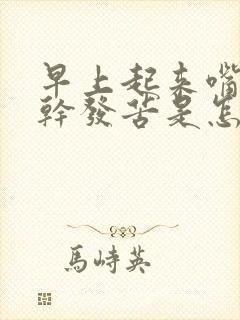 早上起来嘴
幹發苦是怎
馬峙英